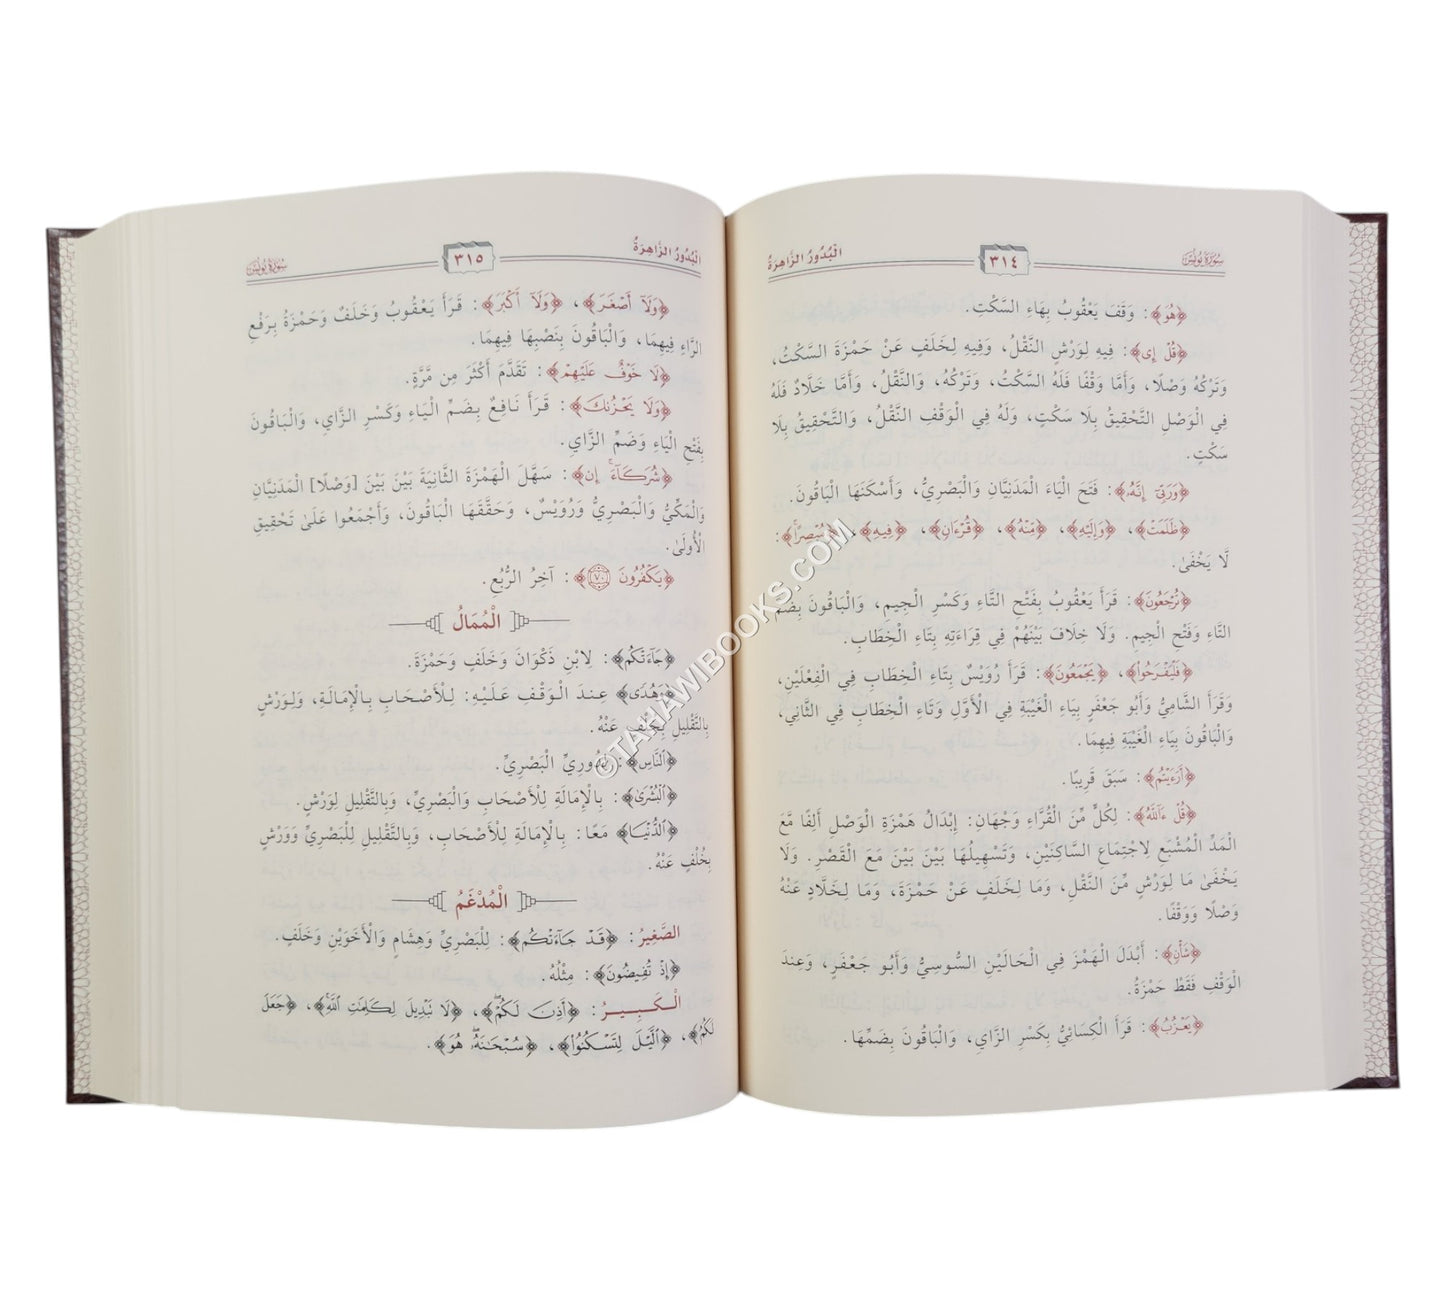 سُورَةُ يُونُسَ ٣١٤ الْبُدُورُ الزَّاهِرَةُ
﴿هُوَ﴾: وَقَفَ يَعْقُوبُ بِهَاءِ السَّكْتِ.
﴿قُلْ إِى﴾: فِيهِ لِوَرْشٍ النَّقْلُ، وَفِيهِ لِخَلَفٍ عَنْ حَمْزَةَ السَّكْتُ،
وَتَرْكُهُ وَصْلًا، وَأَمَّا وَقْفًا فَلَهُ السَّكْتُ، وَتَرْكُهُ، وَالنَّقْلُ، وَأَمَّا خَلَّادٌ فَلَهُ
فِي الْوَصْلِ التَّحْقِيقُ بِلَا سَكْتٍ، وَلَهُ فِي الْوَقْفِ النَّقْلُ، وَالتَّحْقِيقُ بِلَا
سَكْتٍ.
﴿وَرَبِّىٓ إِنَّهُۥ﴾: فَتَحَ الْيَاءَ الْمَدَنِيَّانِ وَالْبَصْرِيُّ، وَأَسْكَنَهَا الْبَاقُونَ.
﴿ظَلَمَتْ﴾، ﴿وَإِلَيْهِ﴾، ﴿مِنْهُ﴾، ﴿قُرْءَانٍ﴾، ﴿فِيهِ﴾، ﴿مُبْصِرًا﴾:
لَا يَخْفَىٰ.
﴿تُرْجَعُونَ﴾: قَرَأَ يَعْقُوبُ بِفَتْحِ التَّاءِ وَكَسْرِ الْجِيمِ، وَالْبَاقُونَ بِضَمِّ
التَّاءِ وَفَتْحِ الْجِيمِ. وَلَا خِلَافَ بَيْنَهُمْ فِي قِرَاءَتِهِ بِتَاءِ الْخِطَابِ.
﴿فَلْيَفْرَحُوا۟﴾، ﴿يَجْمَعُونَ﴾: قَرَأَ رُوَيْسٌ بِتَاءِ الْخِطَابِ فِي الْفِعْلَيْنِ،
وَقَرَأَ الشَّامِيُّ وَأَبُو جَعْفَرٍ بِيَاءِ الْغَيْبَةِ فِي الْأَوَّلِ وَتَاءِ الْخِطَابِ فِي الثَّانِي،
وَالْبَاقُونَ بِيَاءِ الْغَيْبَةِ فِيهِمَا.
﴿أَرَءَيْتُم﴾: سَبَقَ قَرِيبًا.
﴿قُلْ ءَآللَّهُ﴾: لِكُلٍّ مِّنَ الْقُرَّاءِ وَجْهَانِ: إِبْدَالُ هَمْزَةِ الْوَصْلِ أَلِفًا مَّعَ
الْمَدِّ الْمُشْبَعِ لِاجْتِمَاعِ السَّاكِنَيْنِ، وَتَسْهِيلُهَا بَيْنَ بَيْنَ مَعَ الْقَصْرِ. وَلَا
يَخْفَىٰ مَا لِوَرْشٍ مِّنَ النَّقْلِ، وَمَا لِخَلَفٍ عَنْ حَمْزَةَ، وَمَا لِخَلَّادٍ عَنْهُ
وَصْلًا وَوَقْفًا.
﴿شَأْنٍ﴾: أَبْدَلَ الْهَمْزَ فِي الْحَالَيْنِ السُّوسِيُّ وَأَبُو جَعْفَرٍ، وَعِندَ
الْوَقْفِ فَقَطْ حَمْزَةُ.
﴿يَعْزُبُ﴾: قَرَأَ الْكِسَائِيُّ بِكَسْرِ الزَّايِ، وَالْبَاقُونَ بِضَمِّهَا.
الْبُدُورُ الزَّاهِرَةُ ٣١٥ سُورَةُ يُونُسَ
﴿وَلَآ أَصْغَرَ﴾، ﴿وَلَآ أَكْبَرَ﴾: قَرَأَ يَعْقُوبُ وَخَلَفٌ وَحَمْزَةُ بِرَفْعِ
الرَّاءِ فِيهِمَا، وَالْبَاقُونَ بِنَصْبِهَا فِيهِمَا.
﴿لَا خَوْفٌ عَلَيْهِمْ﴾: تَقَدَّمَ أَكْثَرَ مِن مَّرَّةٍ.
﴿وَلَا يَحْزُنكَ﴾: قَرَأَ نَافِعٌ بِضَمِّ الْيَاءِ وَكَسْرِ الزَّايِ، وَالْبَاقُونَ
بِفَتْحِ الْيَاءِ وَضَمِّ الزَّايِ.
﴿شُرَكَآءَ ۚ إِن﴾: سَهَّلَ الْهَمْزَةَ الثَّانِيَةَ بَيْنَ بَيْنَ [وَصْلًا] الْمَدَنِيَّانِ
وَالْمَكِّيُّ وَالْبَصْرِيُّ وَرُوَيْسٌ، وَحَقَّقَهَا الْبَاقُونَ، وَأَجْمَعُوا عَلَىٰ تَحْقِيقِ
الْأُولَىٰ.
﴿يَكْفُرُونَ ٧٠﴾: آخِرُ الرُّبُعِ.
الْمُمَالُ
﴿جَآءَتْكُم﴾: لِابْنِ ذَكْوَانَ وَخَلَفٍ وَحَمْزَةَ.
﴿وَهُدًى﴾ عِندَ الْوَقْفِ عَلَيْهِ: لِلْأَصْحَابِ بِالْإِمَالَةِ، وَلِوَرْشٍ
بِالتَّقْلِيلِ بِخُلْفٍ عَنْهُ.
﴿ٱلنَّاسِ﴾: لِدُورِيِّ الْبَصْرِيِّ.
﴿ٱلْبُشْرَىٰ﴾: بِالْإِمَالَةِ لِلْأَصْحَابِ وَالْبَصْرِيِّ، وَبِالتَّقْلِيلِ لِوَرْشٍ.
﴿ٱلدُّنْيَا﴾ مَعًا: بِالْإِمَالَةِ لِلْأَصْحَابِ، وَبِالتَّقْلِيلِ لِلْبَصْرِيِّ وَوَرْشٍ
بِخُلْفٍ عَنْهُ.
الْمُدْغَمُ
الصَّغِيرُ: ﴿قَدْ جَآءَتْكُم﴾: لِلْبَصْرِيِّ وَهِشَامٍ وَالْأَخَوَيْنِ وَخَلَفٍ.
﴿إِذْ تُفِيضُونَ﴾: مِثْلُهُ.
الْكَبِيرُ: ﴿أَذِنَ لَكُمْ ۖ﴾، ﴿لَا تَبْدِيلَ لِكَلِمَٰتِ ٱللَّهِ ۚ﴾، ﴿جَعَلَ
لَكُمُ﴾، ﴿ٱلَّيْلَ لِتَسْكُنُوا۟﴾، ﴿سُبْحَٰنَهُۥ ۖ هُوَ﴾.
©TAHAWIBOOKS.COM